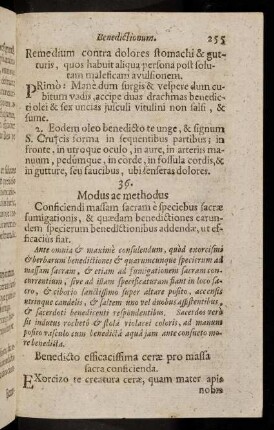 Benedictionum. 255
Remedium contra dolores stomachi & gut-
turis, quos habuit aliqua persona post solu-
tam maleficam avulsionem.
PRimò: Mane dum surgis & vespere dum cu-
bitum vadis, accipe duas drachmas benedic-
ti olei & sex uncias jusculi vitulini non salsi, &
sume.
2. Eodem oleo benedicto te unge, & signum
S. Crucis forma in sequentibus partibus: in
fronte, in utroque oculo, in aure, in arteriis ma-
nuum, pedúmque, in corde, in fossula cordis, &
in gutture, seu faucibus, ubi senseras dolores.
36.
Modus ac methodus
Conficiendi massam sacram è speciebus sacræ
fumigationis, & quædam benedictiones earun-
dem specierum benedictionibus addendæ, ut ef-
ficacius fiat.
Ante omnia & maximè consulendum, quòd exorcismi
& verborum benedictiones & quarumcunque specierum ad
massam sacram, & etiam ad fumigationem sacram con-
currentium, sive ad illam spectantium fiant in loco sa-
cro, & cibario lancissimo super altare posito, accensis
utrinque candelis, & saltem uno vel duobus assistentibus,
& sacerdoti benedicenti respondentibus. Sacerdos verò
sit indutus rocheto & stola violacei coloris, ad manum
posito vasculo cum benedicta aquâ jam ante consueto mo-
re benedicta.
Benedictio efficacissima ceræ pro massa
sacra conficienda.
EXorcizo te creatura ceræ, quam mater apis
nobis